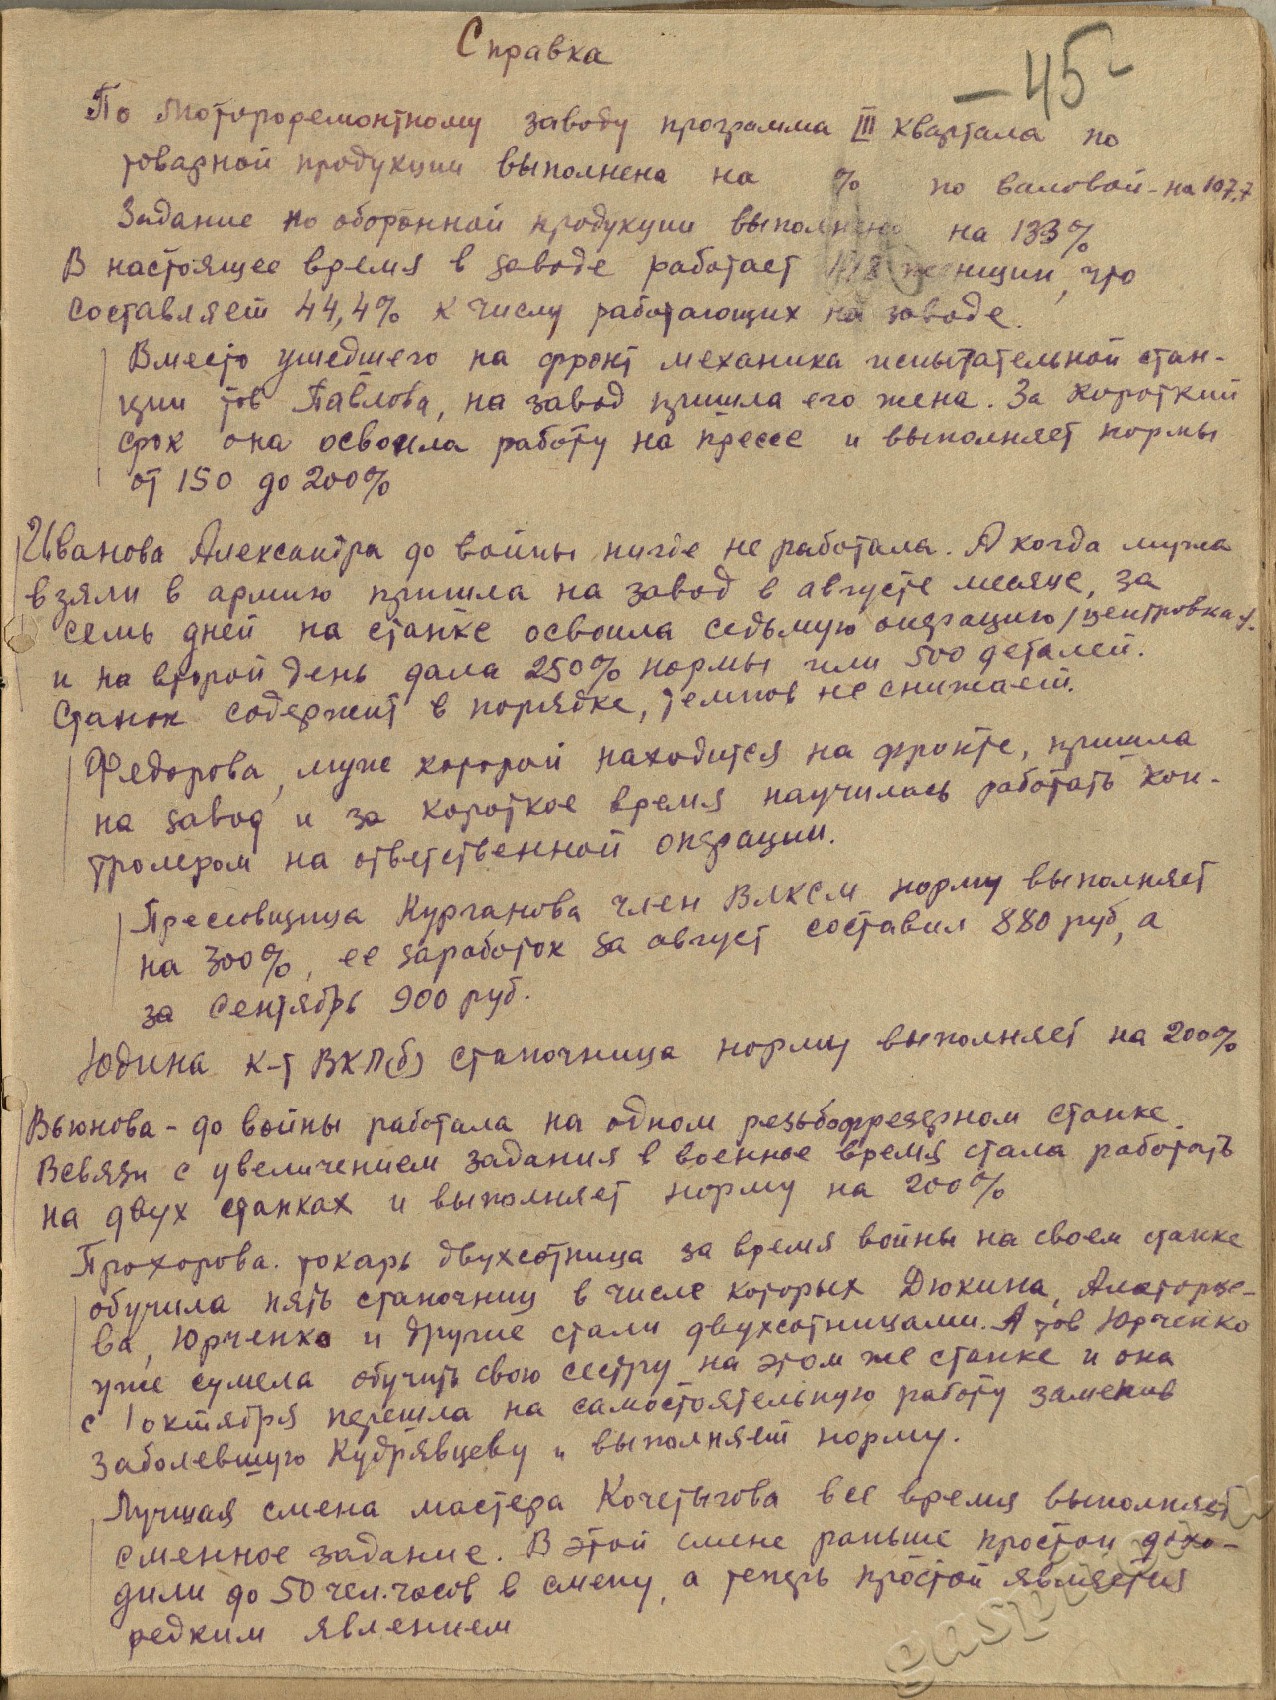 Справка
- 45 -
По Мотороремонтному заводу программа III квартала по
товарной продукции выполнена на % по валовой - на 107,7
Задание по оборонной продукции выполнено на 133%
В настоящее время в заводе работает женщин, что
составляет 44,4% к числу работающих на заводе.
Вместо ушедшего на фронт механика испытательной стан-
ции тов Павлова, на завод пришла его жена. За короткий
срок она освоила работу на прессе и выполняет нормы
от 150 до 200%
Иванова Александра до войны нигде не работала. А когда мужа
взяли в армию пришла на завод в августе месяце, за
семь дней на станке освоила седьмую операцию /центровка/.
и на второй день дала 250% нормы или 500 деталей.
Станок содержит в порядке, темпов не снижает.
Федорова, муж которой находится на фронте, пришла
на завод и за короткое время научилась работать кон-
тролером на ответственной операции.
Прессовщица Курганова член ВЛКСМ норму выполняет
на 300%, ее заработок за август составил 880 руб, а
за сентябрь 900 руб.
Юдина к-т ВКП(б) станочница норму выполняет на 200%
Вьюнова - до войны работала на одном резьбофрезерном станке.
Всвязи с увеличением задания в военное время стала работать
на двух станках и выполняет норму на 200%
Прохорова. токарь двухсотница за время войны на своем станке
обучила пять станочниц в числе которых Дюкина, Алаторце-
ва, Юрченко и другие стали двухсотницами. А тов Юрченко
уже сумела обучить свою сестру на этом же станке и она
с 1 октября перешла на самостоятельную работу заменив
заболевшую Кудрявцеву и выполняет норму.
Лучшая смена мастера Кочетыгова все время выполняет
сменное задание. В этой смене раньше простои дохо-
дили до 50 чел. часов в смену, а теперь простой является
редким явлением